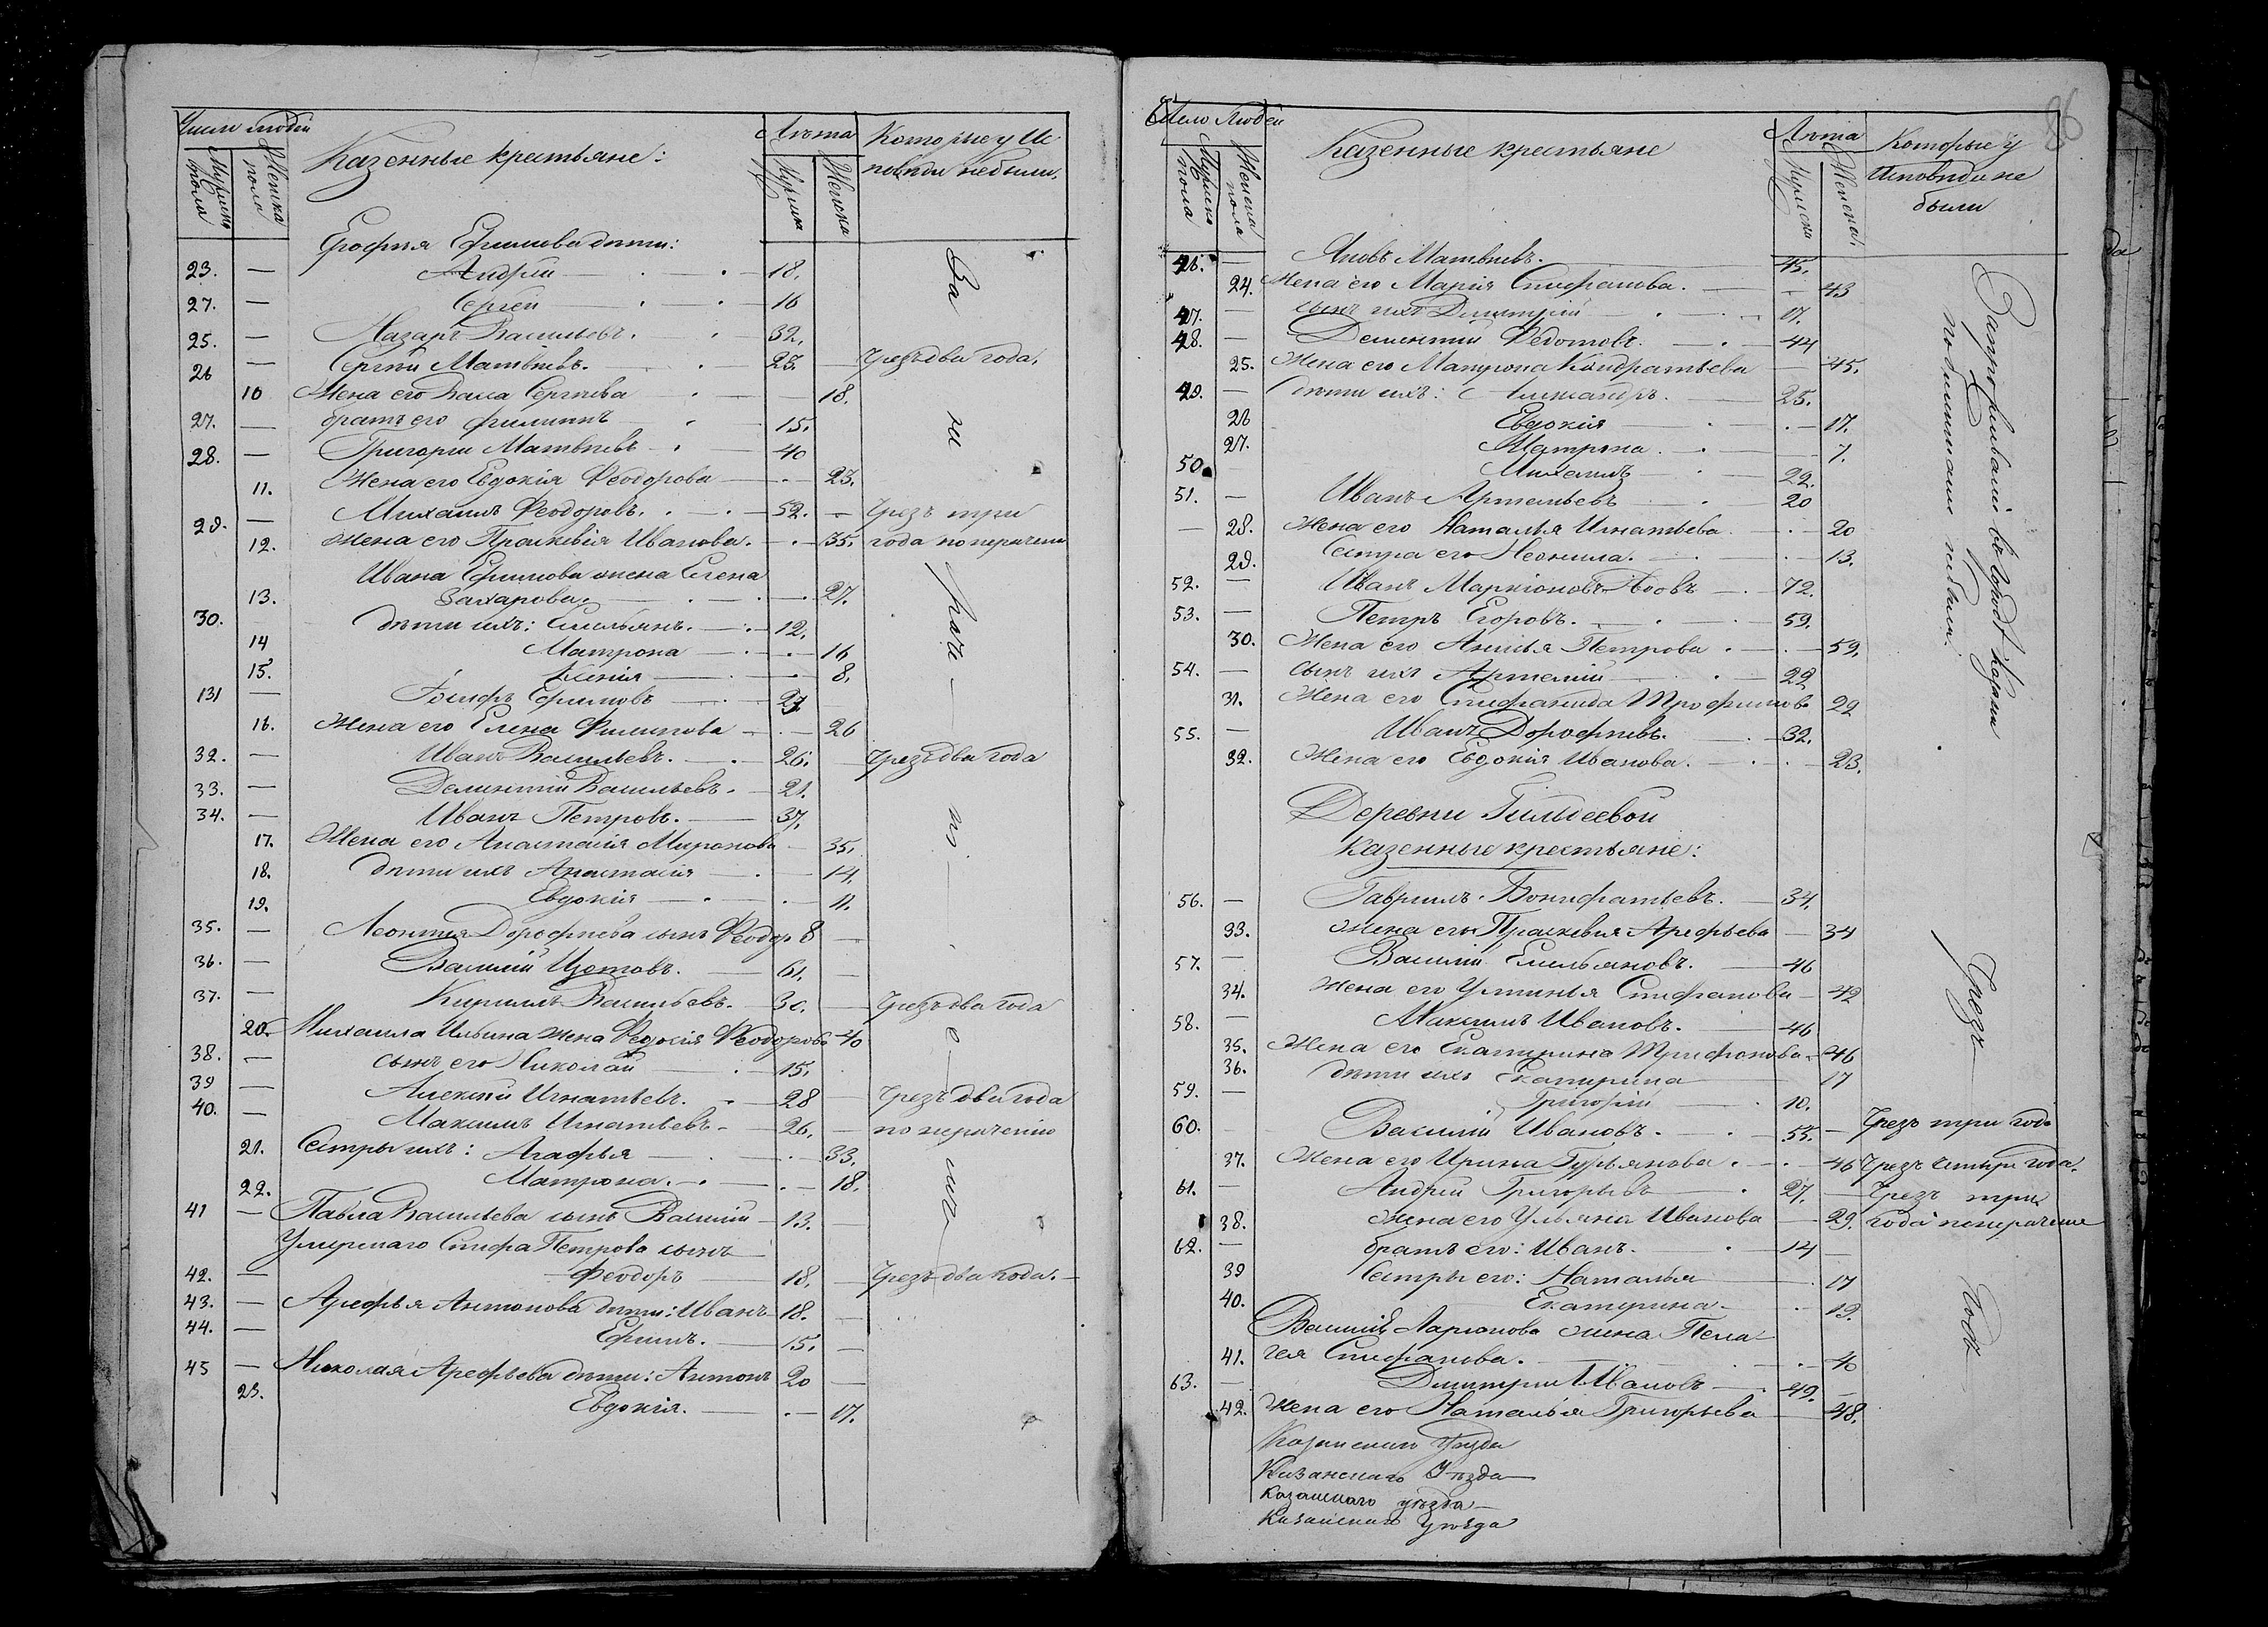 Число людей
Мужеска пола
Женска пола
Казенные крестьяне:
Лѣта
Мужеска
Женска
Которые у Ис
повѣди небыли.
Ерофѣя Ефимова дѣти:
23. — Андрей — 18.
27. — Сергѣй — 16
25. — Назаръ Васильевъ. 32.
26 — Сергѣй Матвѣевъ. — 23. Чрезъ два года.
10 Жена его Васса Сергѣева 18.
27. — братъ его Филиппъ 15.
28. — Григорій Матвѣевъ 40
11. Жена его Евдокія Феодорова — 23.
29. — Михаилъ Феодоровъ. — 52. — Чрезъ три
12. Жена его Прасковія Иванова. — 35. года по нераченію
Ивана Ефимова жена Елена
13. Захарова. — 27.
30. дѣти ихъ: Емельянъ. — 12.
14 Матрона — 16
15. Ксенія — 8.
131 — Іосифъ Ефимовъ — 27
16. Жена его Елена Филипова — 26
32. — Иванъ Васильевъ. — 26. Чрезъ два года
33. — Дементій Васильевъ. — 21.
34. — Иванъ Петровъ. — 37.
17. Жена его Анастасія Миронова 35.
18. дѣти ихъ Анастасія — 14.
19. Евдокія — 11.
35. — Леонтія Дорофѣева сынъ Феодор 8
36. — Василій Изотовъ. — 61.
37. — Кириллъ Васильевъ. — 30. — Чрезъ два года
20. Михаила Ильина жена Федосія Феодорова 40
38. — сынъ его Николай — 15.
39 — Алексѣй Игнатьевъ. — 28 — Чрезъ два года
40. — Максимъ Игнатьевъ — 26. — по нераченію
21. Сестры ихъ: Агафья — 33.
22. Матрона. — 18.
41 — Павла Васильева сынъ Василій — 13.
Умершаго Петрова сынъ
42. — Феодоръ 18. — Чрезъ два года. —
43. — Арефья Антонова дѣти: Иванъ 18.
44. — Ефимъ. — 15. —
45 — Николая Арефьева дѣти: Антонъ 20 —
23. Евдокія. — 17.
За не раче ні е мъ
Число Людей
Мужеска пола
Женска пола
Казенные крестьяне
Лѣта
Мужеска
Женска.
Которые у
Исповѣди не
были
86
46. — Яковъ Матвѣевъ. 45.
24. Жена его Марія Стефанова. — 43
47. — сынъ ихъ Димитрій — 17.
48. — Дементій Федотовъ. — 44
25. Жена его Матрона Кондратьева — 45.
49. — дѣти ихъ: Александръ. — 25.
26 Евдокія — 17.
27. Матрона. — 7.
50. Михаилъ 22.
51. — Иванъ Артемьевъ 20
— 28. Жена его Наталья Игнатьева — 20
29. Сестра его Неонила. — 13.
52. — Иванъ Маркіоновъ вдовъ — 72.
53. — Петръ Егоровъ. — 59.
30. Жена его Анисья Петрова — 59.
54. — сынъ ихъ Артемій — 22
31. Жена его Стефанида Трофимова 22
55. — Иванъ Дорофѣевъ. 32.
32. Жена его Евдокія Иванова. — 23.
Запрашивали въ городъ
Деревни Гильдеевой
Казенные крестьяне:
56. — Гавріилъ Вонифатьевъ. — 34.
33. Жена его Прасковья Арефьева — 34
57. — Василій Емельяновъ. — 46
34. Жена его Устинья Стефанова — 42
58. — Максимъ Ивановъ. — 46
35. Жена его Екатерина Трифонова — 46
36. дѣти ихъ Екатерина 17
59. — Григорій — 10.
60. — Василій Ивановъ. — 55. — Чрезъ три года
37. Жена его Ирина Гурьянова. — 46 Чрезъ четыре года.
61. — Андрей Григорьевъ — 27. — Чрезъ три
38. жена его Ульяна Иванова — 29. года по нераченію
62. — братъ его: Иванъ. 14 —
39 Сестры его: Наталья 17
40. Екатерина — 19.
Василія Ларіонова жена Пела
41. гея Стефанова. — 40
63. — Димитрій Ивановъ — 49. —
42. Жена его Наталья Григорьева — 48.
Чрезъ годъ
Казанскаго Уѣзда
Казанскаго Уѣзда —
Казанскаго уѣзда —
Казанскаго уѣзда